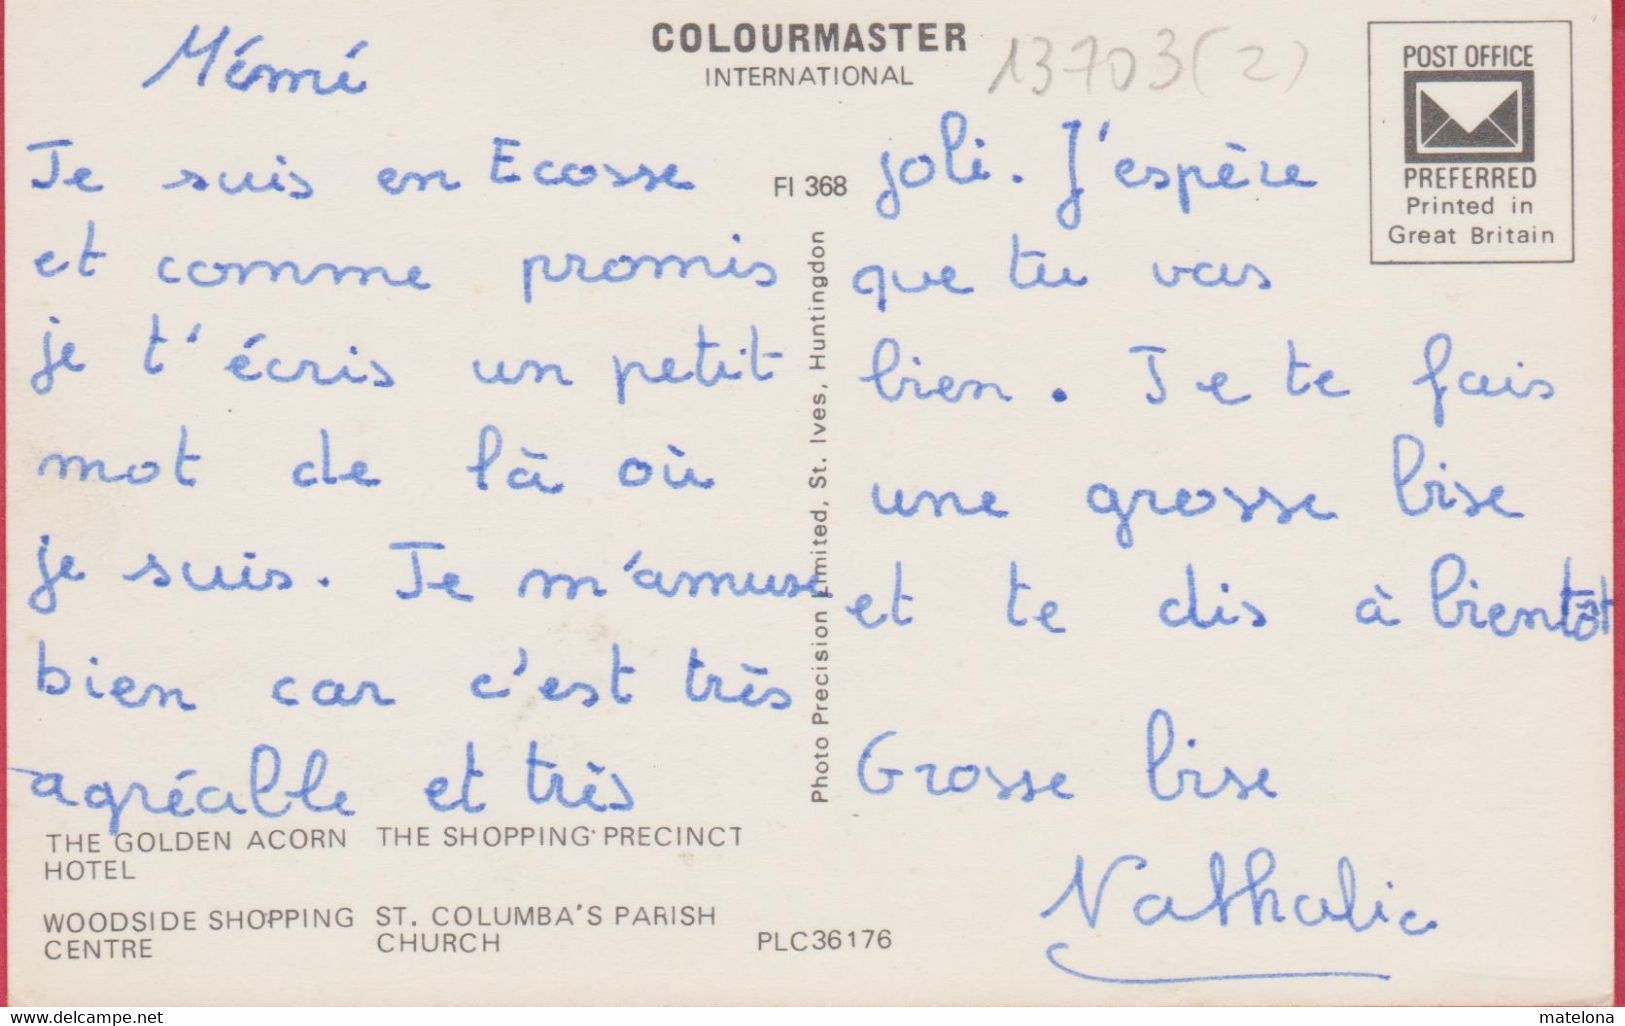 COLOURMASTER
INTERNATIONAL
13703(2)
POST OFFICE
PREFERRED
Printed in
Great Britain
FI 368
Mémé
Je suis en Ecosse
et comme promis
je t'écris un petit
mot de là où
je suis. Je m'amuse
bien car c'est très
agréable et très
joli. J'espère
que tu vas
bien. Je te fais
une grosse bise
et te dis à bientôt
Grosse bise
Nathalie
Photo Precision Limited, St. Ives, Huntingdon
THE GOLDEN ACORN
HOTEL
THE SHOPPING PRECINCT
WOODSIDE SHOPPING
CENTRE
ST. COLUMBA'S PARISH
CHURCH
PLC36176
www.delcampe.net
matelona